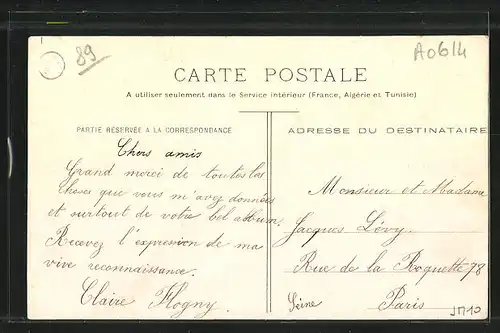 89
A0614
CARTE POSTALE
A utiliser seulement dans le Service intérieur (France, Algérie et Tunisie)
PARTIE RÉSERVÉE A LA CORRESPONDANCE
Chers amis
Grand merci de toutes les
choses que vous m'avez données
et surtout de votre bel album.
Recevez l'expression de ma
vive reconnaissance.
Claire Flogny.
ADRESSE DU DESTINATAIRE
Monsieur et Madame
Jacques Lévy.
Rue de la Roquette 78
Seine Paris